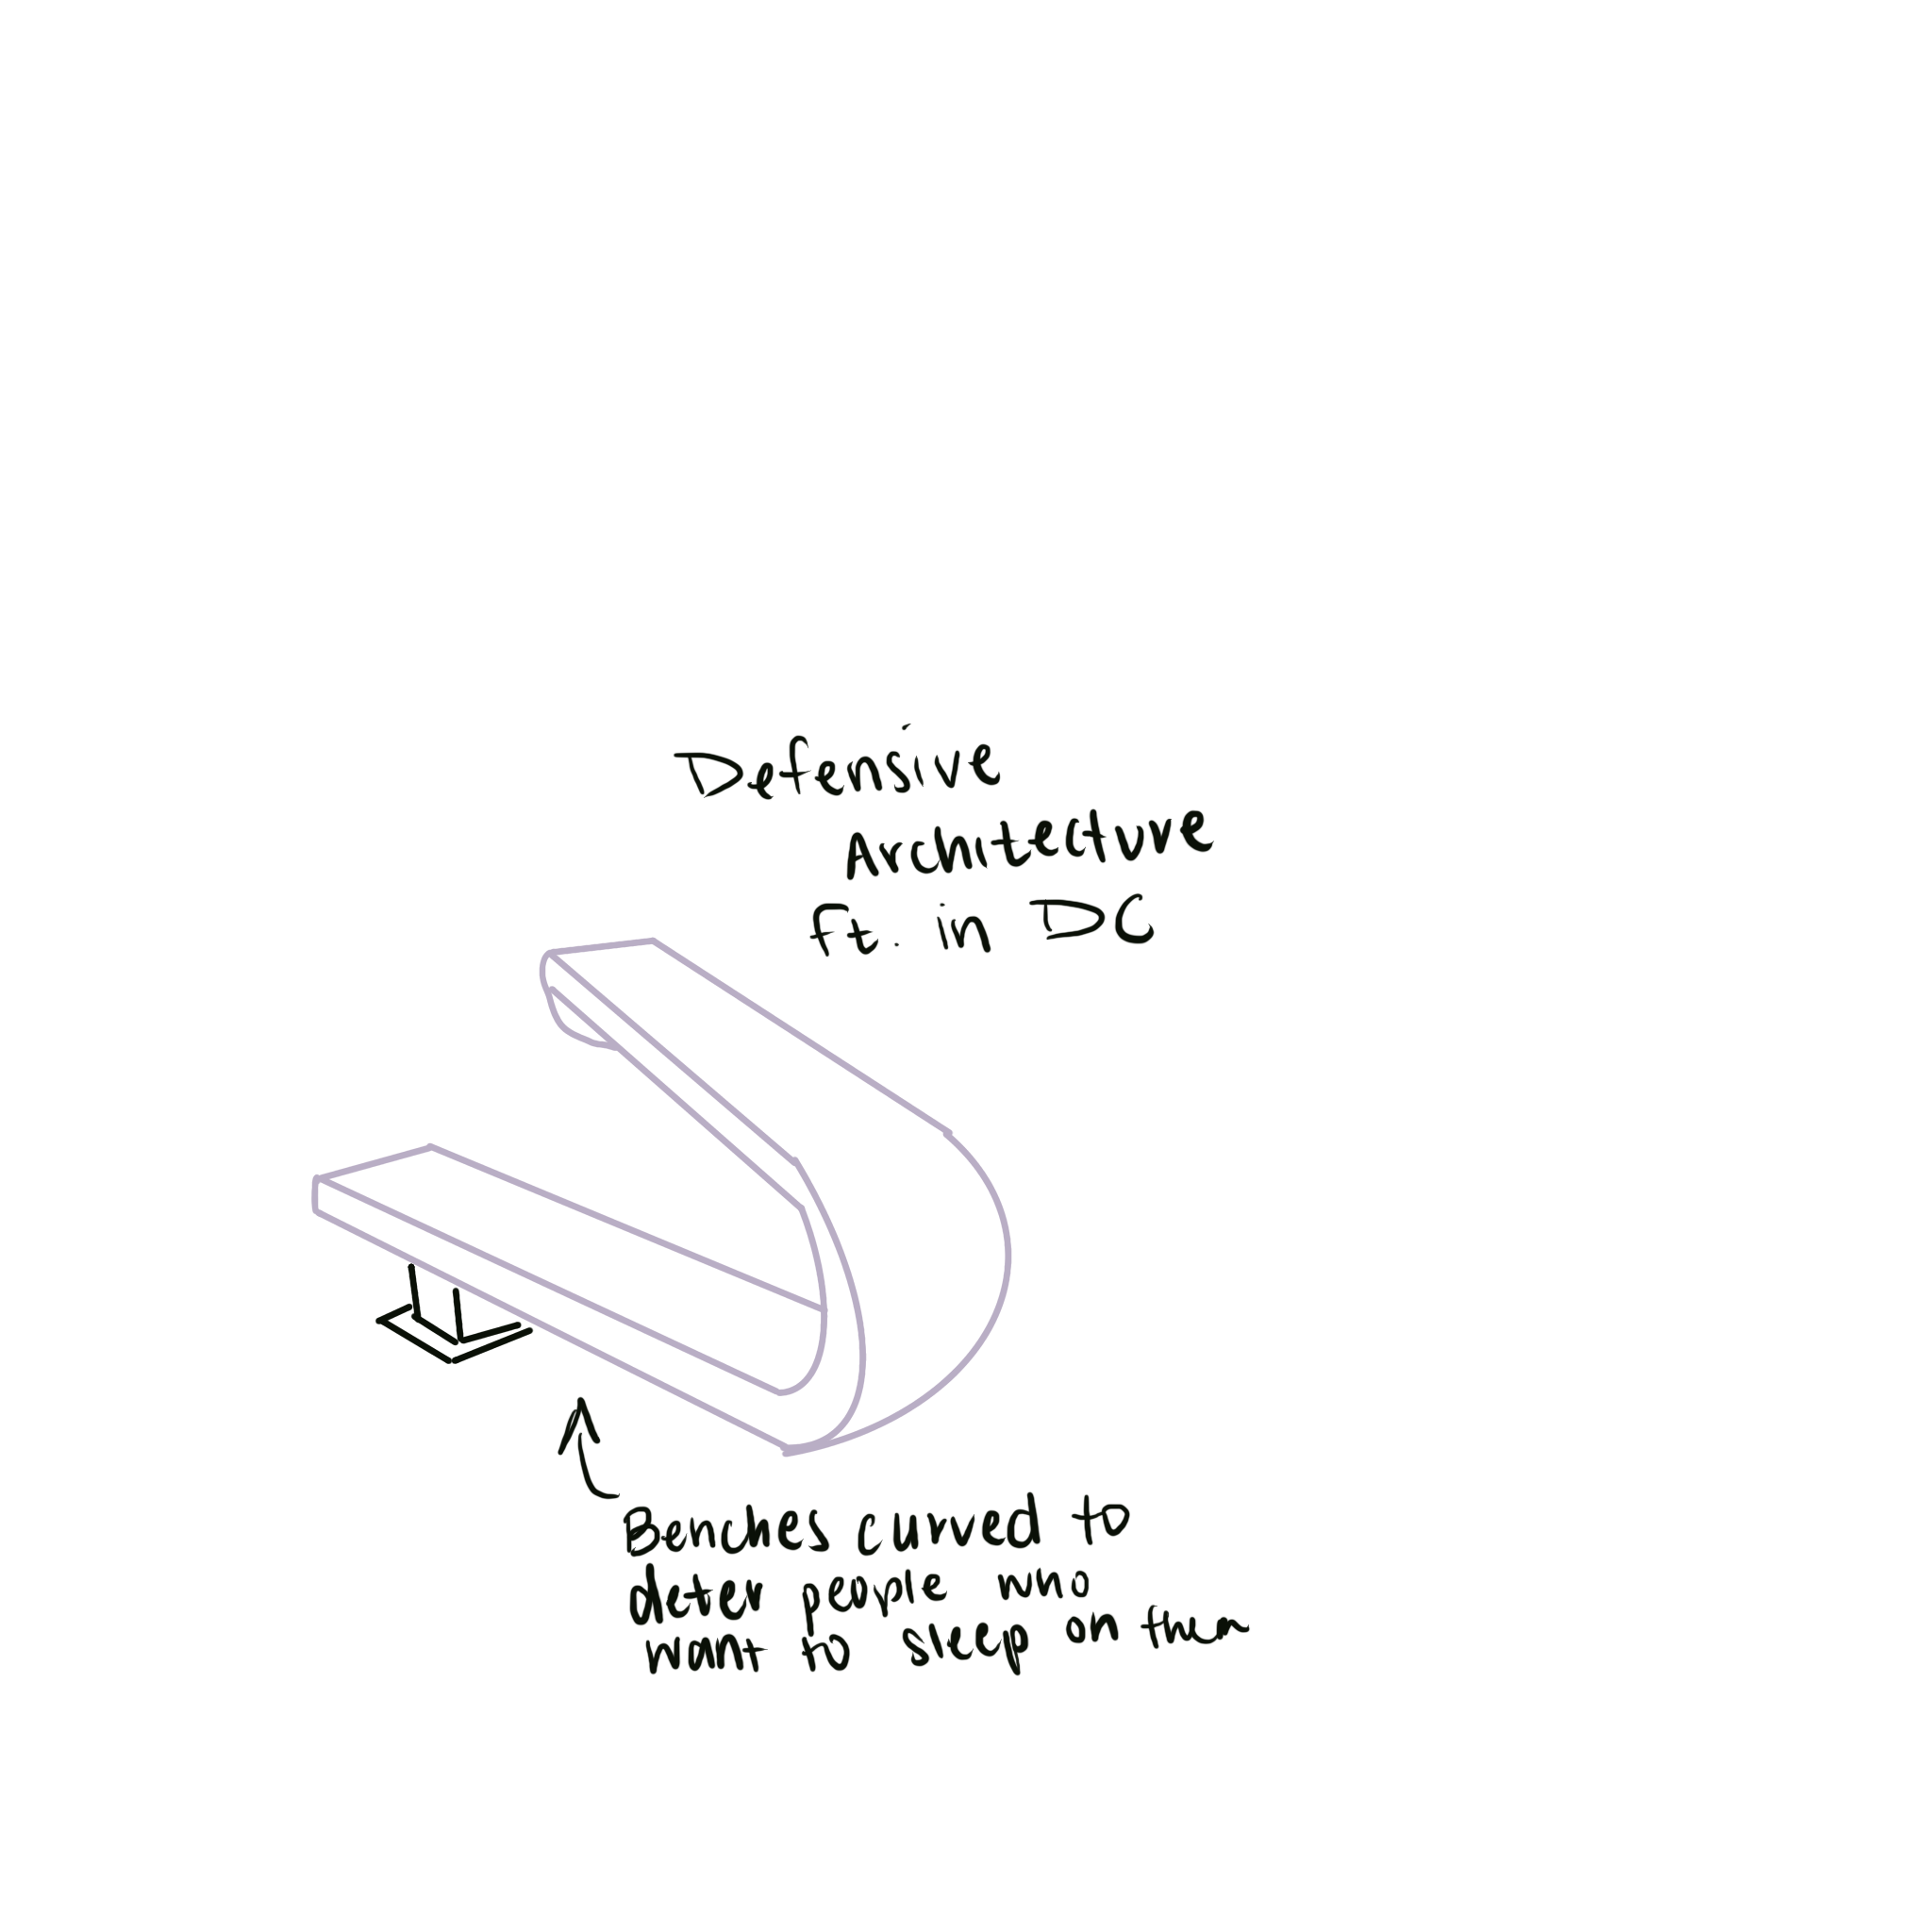 Defensive
Architecture
ft. in DC
Benches curved to
deter people who
want to sleep on them